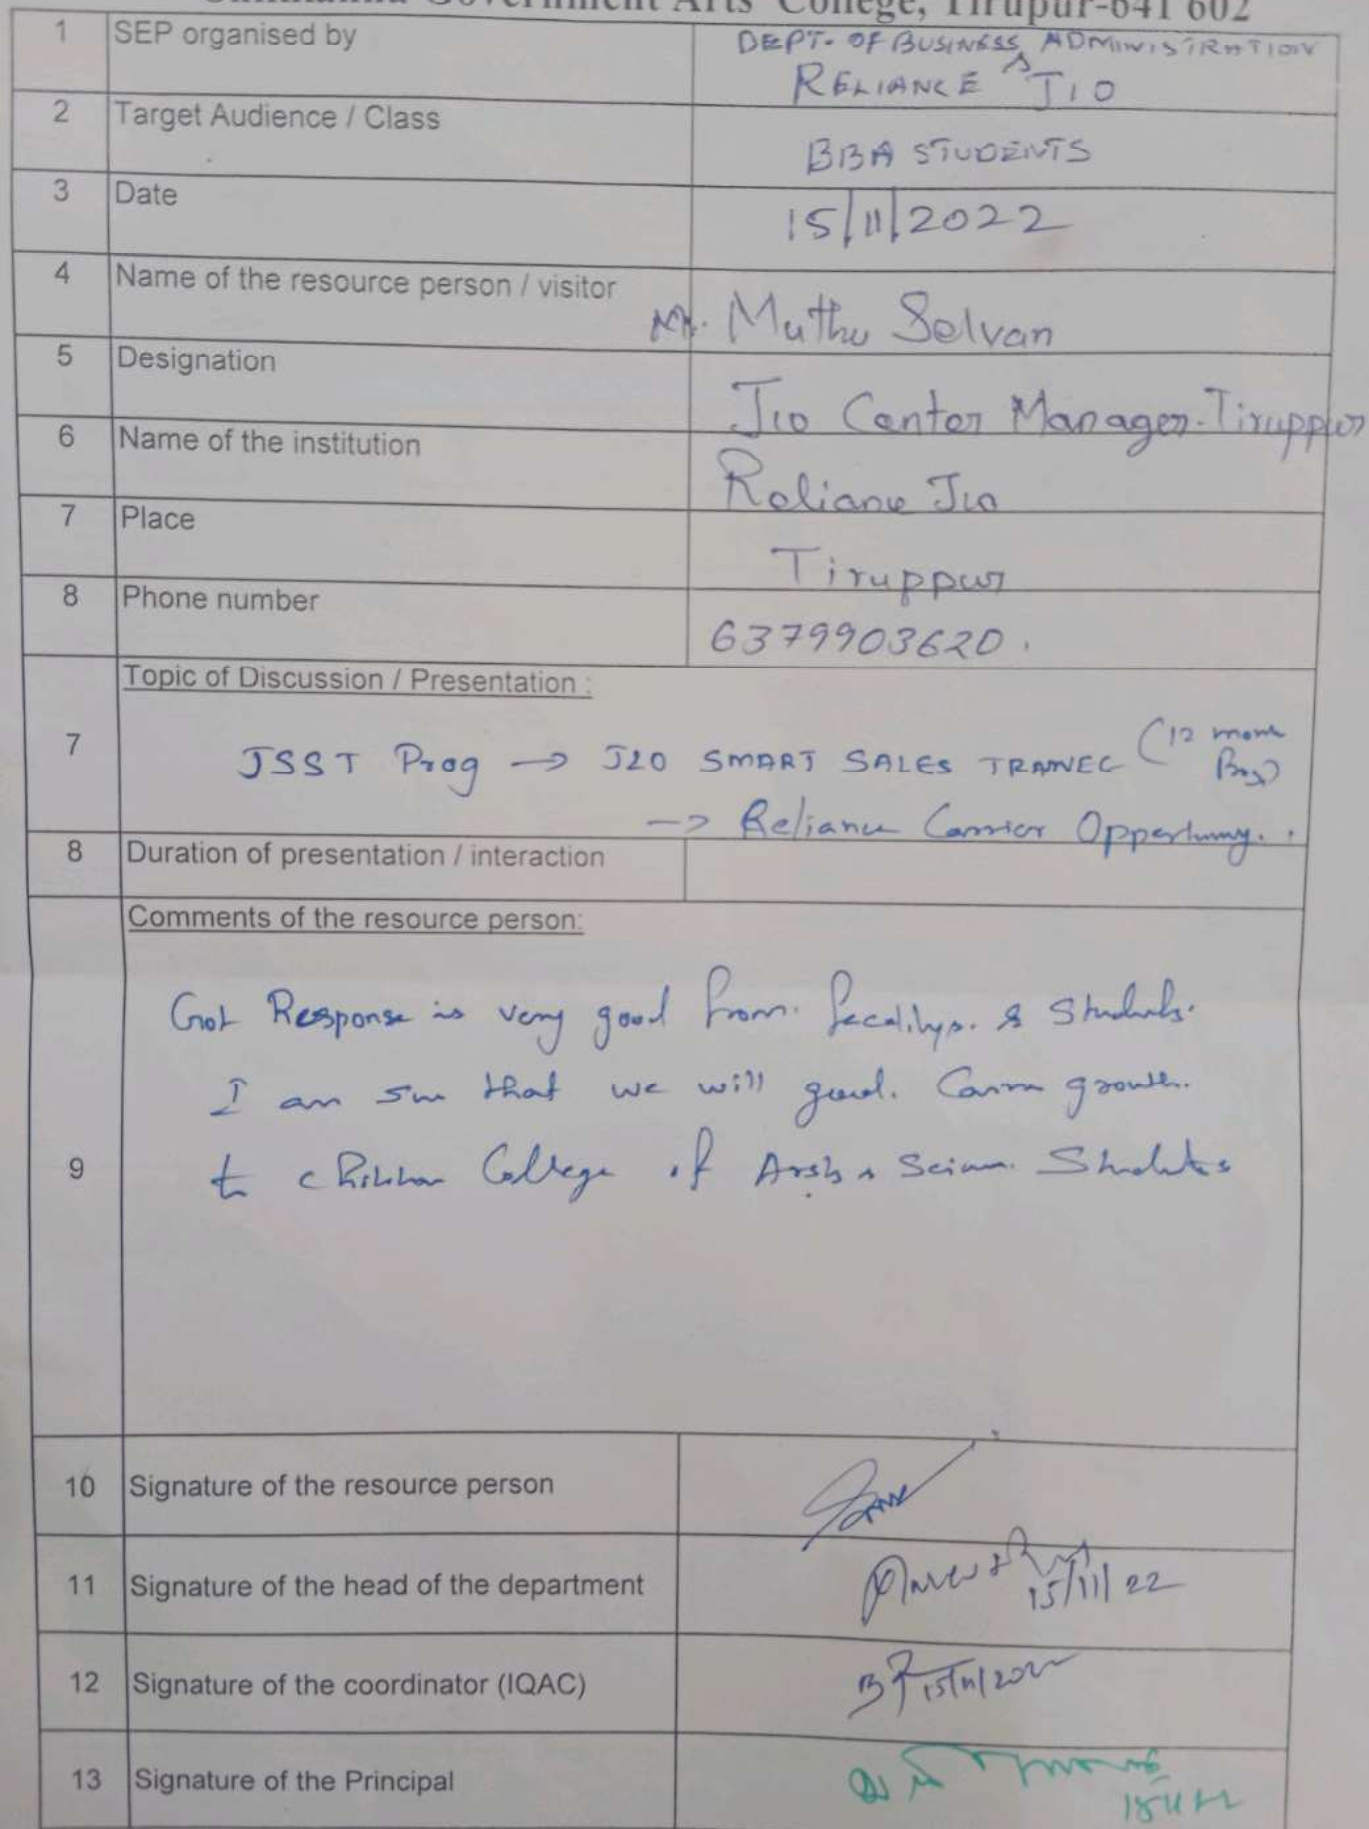 Government Arts College, Tirupur-641 602
1 SEP organised by DEPT. OF BUSINESS ADMINISTRATION
RELIANCE JIO
2 Target Audience / Class BBA STUDENTS
3 Date 15/11/2022
4 Name of the resource person / visitor Mr. Muthu Selvan
5 Designation Jio Center Manager-Tiruppur
6 Name of the institution Reliance Jio
7 Place Tiruppur
8 Phone number 6379903620.
Topic of Discussion / Presentation :
7 JSST Prog → JIO SMART SALES TRAINEE (12
→ Reliance Carrier
8 Duration of presentation / interaction
Comments of the resource person:
Got Response is very good from & Students.
I am that we will good.
9 College of Students
10 Signature of the resource person
11 Signature of the head of the department 15/11/22
12 Signature of the coordinator (IQAC) 15/11/2022
13 Signature of the Principal